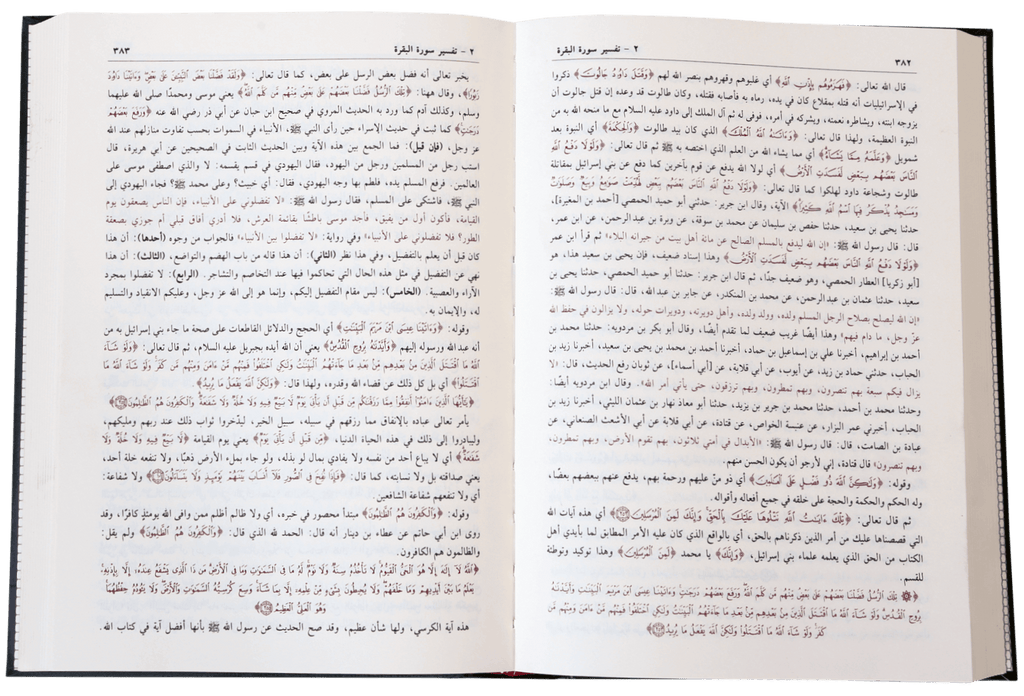 ٣٨٢
٢ - تفسير سورة البقرة
قال الله تعالى: ﴿فَهَزَمُوهُم بِإِذْنِ اللَّهِ﴾ أي غلبوهم وقهروهم بنصر الله لهم ﴿وَقَتَلَ دَاوُدُ جَالُوتَ﴾ ذكروا
في الإسرائيليات أنه قتله بمقلاع كان في يده، رماه به فأصابه فقتله، وكان طالوت قد وعده إن قتل جالوت أن
يزوجه ابنته، ويشاطره نعمته، ويشركه في أمره، فوفى له ثم آل الملك إلى داود عليه السلام مع ما منحه الله به من
النبوة العظيمة، ولهذا قال تعالى: ﴿وَءَاتَىٰهُ اللَّهُ الْمُلْكَ﴾ الذي كان بيد طالوت ﴿وَالْحِكْمَةَ﴾ أي النبوة بعد
شمويل ﴿وَعَلَّمَهُ مِمَّا يَشَاءُ﴾ أي مما يشاء الله من العلم الذي اختصه به ﷺ ثم قال تعالى: ﴿وَلَوْلَا دَفْعُ اللَّهِ
النَّاسَ بَعْضَهُم بِبَعْضٍ لَّفَسَدَتِ الْأَرْضُ﴾ أي لولا الله يدفع عن قوم بآخرين كما دفع عن بني إسرائيل بمقاتلة
طالوت وشجاعة داود لهلكوا كما قال تعالى: ﴿وَلَوْلَا دَفْعُ اللَّهِ النَّاسَ بَعْضَهُم بِبَعْضٍ لَّهُدِّمَتْ صَوَامِعُ وَبِيَعٌ وَصَلَوَاتٌ
وَمَسَاجِدُ يُذْكَرُ فِيهَا اسْمُ اللَّهِ كَثِيرًا﴾ الآية، وقال ابن جرير: حدثني أبو حميد الحمصي [أحمد بن المغيرة]،
حدثنا يحيى بن سعيد، حدثنا حفص بن سليمان عن محمد بن سوقة، عن وبرة بن عبد الرحمن، عن ابن عمر،
قال: قال رسول الله ﷺ: «إن الله ليدفع بالمسلم الصالح عن مائة أهل بيت من جيرانه البلاء» ثم قرأ ابن عمر
﴿وَلَوْلَا دَفْعُ اللَّهِ النَّاسَ بَعْضَهُم بِبَعْضٍ لَّفَسَدَتِ الْأَرْضُ﴾ وهذا إسناد ضعيف، فإن يحيى بن سعيد هذا، هو
[أبو زكريا] العطار الحمصي، وهو ضعيف جدًّا، ثم قال ابن جرير: حدثنا أبو حميد الحمصي، حدثنا يحيى بن
سعيد، حدثنا عثمان بن عبد الرحمن، عن محمد بن المنكدر، عن جابر بن عبد الله، قال: قال رسول الله ﷺ:
«إن الله ليصلح بصلاح الرجل المسلم ولده، وولد ولده، وأهل دويرته، ودويرات حوله، ولا يزالون في حفظ الله
عز وجل، ما دام فيهم» وهذا أيضًا غريب ضعيف لما تقدم أيضًا، وقال أبو بكر بن مردويه: حدثنا محمد بن
أحمد بن إبراهيم، أخبرنا علي بن إسماعيل بن حماد، أخبرنا أحمد بن محمد بن يحيى بن سعيد، أخبرنا زيد بن
الحباب، حدثني حماد بن زيد، عن أيوب، عن أبي قلابة، عن [أبي أسماء]، عن ثوبان رفع الحديث، قال: «لا
يزال فيكم سبعة بهم تنصرون، وبهم تمطرون، وبهم ترزقون، حتى يأتي أمر الله». وقال ابن مردويه أيضًا:
وحدثنا محمد بن أحمد، حدثنا محمد بن جرير بن يزيد، حدثنا أبو معاذ نهار بن عثمان الليثي، أخبرنا زيد بن
الحباب، أخبرني عمر البزار، عن عنبسة الخواص، عن قتادة، عن أبي قلابة عن أبي الأشعث الصنعاني، عن
عبادة بن الصامت، قال: قال رسول الله ﷺ: «الأبدال في أمتي ثلاثون، بهم تقوم الأرض، وبهم تمطرون،
وبهم تنصرون» قال قتادة، إني لأرجو أن يكون الحسن منهم.
وقوله: ﴿وَلَٰكِنَّ اللَّهَ ذُو فَضْلٍ عَلَى الْعَالَمِينَ﴾ أي ذو منّ عليهم ورحمة بهم، يدفع عنهم ببعضهم بعضا،
وله الحكم والحكمة والحجة على خلقه في جميع أفعاله وأقواله.
ثم قال تعالى: ﴿تِلْكَ ءَايَاتُ اللَّهِ نَتْلُوهَا عَلَيْكَ بِالْحَقِّ وَإِنَّكَ لَمِنَ الْمُرْسَلِينَ﴾ أي هذه آيات الله
التي قصصناها عليك من أمر الذين ذكرناهم بالحق، أي بالواقع الذي كان عليه الأمر المطابق لما بأيدي أهل
الكتاب من الحق الذي يعلمه علماء بني إسرائيل، ﴿وَإِنَّكَ﴾ يا محمد ﴿لَمِنَ الْمُرْسَلِينَ﴾ وهذا توكيد وتوطئة
للقسم.
﴿تِلْكَ الرُّسُلُ فَضَّلْنَا بَعْضَهُمْ عَلَىٰ بَعْضٍ مِّنْهُم مَّن كَلَّمَ اللَّهُ وَرَفَعَ بَعْضَهُمْ دَرَجَاتٍ وَءَاتَيْنَا عِيسَى ابْنَ مَرْيَمَ الْبَيِّنَاتِ وَأَيَّدْنَاهُ
بِرُوحِ الْقُدُسِ وَلَوْ شَاءَ اللَّهُ مَا اقْتَتَلَ الَّذِينَ مِن بَعْدِهِم مِّن بَعْدِ مَا جَاءَتْهُمُ الْبَيِّنَاتُ وَلَٰكِنِ اخْتَلَفُوا فَمِنْهُم مَّنْ ءَامَنَ وَمِنْهُم مَّن
كَفَرَ وَلَوْ شَاءَ اللَّهُ مَا اقْتَتَلُوا وَلَٰكِنَّ اللَّهَ يَفْعَلُ مَا يُرِيدُ﴾
٢ - تفسير سورة البقرة
٣٨٣
يخبر تعالى أنه فضل بعض الرسل على بعض، كما قال تعالى: ﴿وَلَقَدْ فَضَّلْنَا بَعْضَ النَّبِيِّنَ عَلَىٰ بَعْضٍ وَءَاتَيْنَا دَاوُدَ
زَبُورًا﴾، وقال ههنا: ﴿تِلْكَ الرُّسُلُ فَضَّلْنَا بَعْضَهُمْ عَلَىٰ بَعْضٍ مِّنْهُم مَّن كَلَّمَ اللَّهُ﴾ يعني موسى ومحمدًا صلى الله عليهما
وسلم، وكذلك آدم كما ورد به الحديث المروي في صحيح ابن حبان عن أبي ذر رضي الله عنه ﴿وَرَفَعَ بَعْضَهُمْ
دَرَجَاتٍ﴾ كما ثبت في حديث الإسراء حين رأى النبي ﷺ، الأنبياء في السموات بحسب تفاوت منازلهم عند الله
عز وجل، (فإن قيل): فما الجمع بين هذه الآية وبين الحديث الثابت في الصحيحين عن أبي هريرة، قال:
استب رجل من المسلمين ورجل من اليهود، فقال اليهودي في قسم يقسمه: لا والذي اصطفى موسى على
العالمين. فرفع المسلم يده، فلطم بها وجه اليهودي، فقال: أي خبيث؟ وعلى محمد ﷺ؟ فجاء اليهودي إلى
النبي ﷺ، فاشتكى على المسلم، فقال رسول الله ﷺ: «لا تفضلوني على الأنبياء، فإن الناس يصعقون يوم
القيامة، فأكون أول من يفيق، فأجد موسى باطشًا بقائمة العرش، فلا أدري أفاق قبلي أم جوزي بصعقة
الطور؟ فلا تفضلوني على الأنبياء» وفي رواية: «لا تفضلوا بين الأنبياء» فالجواب من وجوه (أحدها): أن هذا
كان قبل أن يعلم بالتفضيل، وفي هذا نظر (الثاني): أن هذا قاله من باب الهضم والتواضع، (الثالث): أن هذا
نهي عن التفضيل في مثل هذه الحال التي تحاكموا فيها عند التخاصم والتشاجر. (الرابع): لا تفضلوا بمجرد
الآراء والعصبية. (الخامس): ليس مقام التفضيل إليكم، وإنما هو إلى الله عز وجل، وعليكم الانقياد والتسليم
له، والإيمان به.
وقوله: ﴿وَءَاتَيْنَا عِيسَى ابْنَ مَرْيَمَ الْبَيِّنَاتِ﴾ أي الحجج والدلائل القاطعات على صحة ما جاء بني إسرائيل به من
أنه عبد الله ورسوله إليهم ﴿وَأَيَّدْنَاهُ بِرُوحِ الْقُدُسِ﴾ يعني أن الله أيده بجبريل عليه السلام، ثم قال تعالى: ﴿وَلَوْ شَاءَ
اللَّهُ مَا اقْتَتَلَ الَّذِينَ مِن بَعْدِهِم مِّن بَعْدِ مَا جَاءَتْهُمُ الْبَيِّنَاتُ وَلَٰكِنِ اخْتَلَفُوا فَمِنْهُم مَّنْ ءَامَنَ وَمِنْهُم مَّن كَفَرَ وَلَوْ شَاءَ اللَّهُ مَا
اقْتَتَلُوا﴾ أي بل كل ذلك عن قضاء الله وقدره، ولهذا قال: ﴿وَلَٰكِنَّ اللَّهَ يَفْعَلُ مَا يُرِيدُ﴾.
﴿يَا أَيُّهَا الَّذِينَ ءَامَنُوا أَنفِقُوا مِمَّا رَزَقْنَاكُم مِّن قَبْلِ أَن يَأْتِيَ يَوْمٌ لَّا بَيْعٌ فِيهِ وَلَا خُلَّةٌ وَلَا شَفَاعَةٌ وَالْكَافِرُونَ هُمُ الظَّالِمُونَ﴾
يأمر تعالى عباده بالإنفاق مما رزقهم في سبيله، سبيل الخير، ليدّخروا ثواب ذلك عند ربهم ومليكهم،
وليبادروا إلى ذلك في هذه الحياة الدنيا، ﴿مِّن قَبْلِ أَن يَأْتِيَ يَوْمٌ﴾ يعني يوم القيامة ﴿لَّا بَيْعٌ فِيهِ وَلَا خُلَّةٌ وَلَا
شَفَاعَةٌ﴾ أي لا يباع أحد من نفسه ولا يفادي بمال لو بذله، ولو جاء بملء الأرض ذهبًا، ولا تنفعه خلة أحد،
يعني صداقته بل ولا نسابته، كما قال: ﴿فَإِذَا نُفِخَ فِي الصُّورِ فَلَا أَنسَابَ بَيْنَهُمْ يَوْمَئِذٍ وَلَا يَتَسَاءَلُونَ﴾ ولا شفاعة:
أي ولا تنفعهم شفاعة الشافعين.
وقوله: ﴿وَالْكَافِرُونَ هُمُ الظَّالِمُونَ﴾ مبتدأ محصور في خبره، أي ولا ظالم أظلم ممن وافى الله يومئذٍ كافرًا، وقد
روى ابن أبي حاتم عن عطاء بن دينار أنه قال: الحمد لله الذي قال: ﴿وَالْكَافِرُونَ هُمُ الظَّالِمُونَ﴾ ولم يقل:
والظالمون هم الكافرون.
﴿اللَّهُ لَا إِلَٰهَ إِلَّا هُوَ الْحَيُّ الْقَيُّومُ لَا تَأْخُذُهُ سِنَةٌ وَلَا نَوْمٌ لَّهُ مَا فِي السَّمَاوَاتِ وَمَا فِي الْأَرْضِ مَن ذَا الَّذِي يَشْفَعُ عِندَهُ إِلَّا بِإِذْنِهِ
يَعْلَمُ مَا بَيْنَ أَيْدِيهِمْ وَمَا خَلْفَهُمْ وَلَا يُحِيطُونَ بِشَيْءٍ مِّنْ عِلْمِهِ إِلَّا بِمَا شَاءَ وَسِعَ كُرْسِيُّهُ السَّمَاوَاتِ وَالْأَرْضَ وَلَا يَئُودُهُ حِفْظُهُمَا
وَهُوَ الْعَلِيُّ الْعَظِيمُ﴾
هذه آية الكرسي، ولها شأن عظيم، وقد صح الحديث عن رسول الله ﷺ بأنها أفضل آية في كتاب الله.